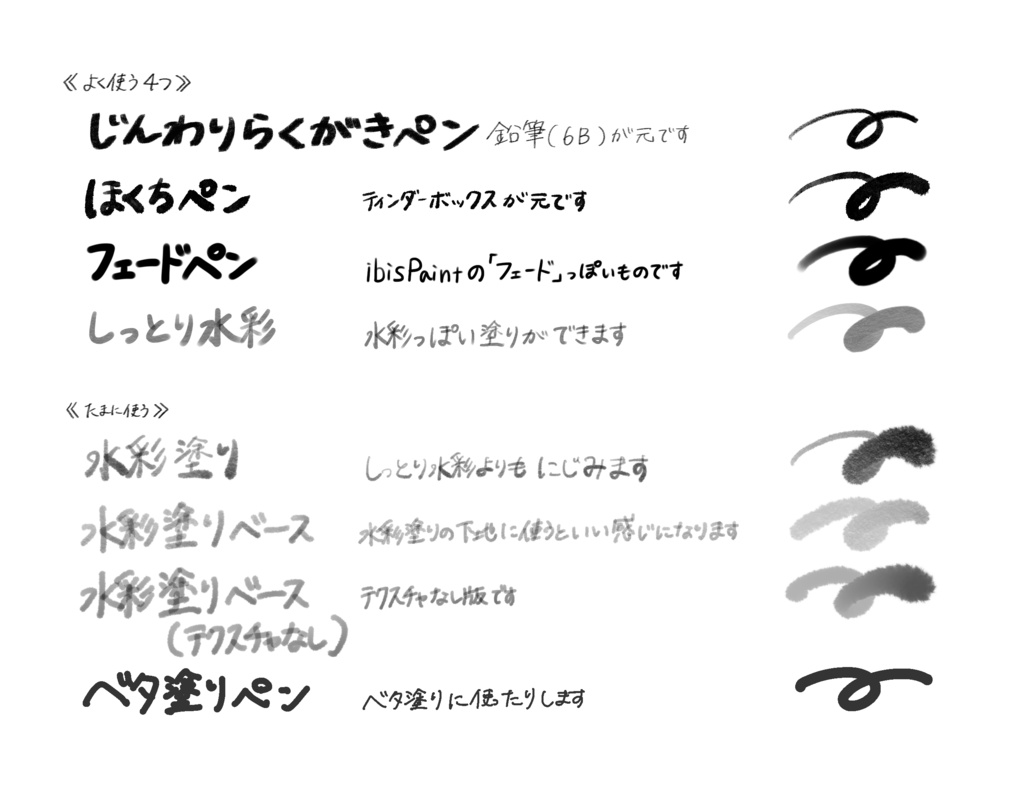 《よく使う4つ》
じんわりらくがきペン 鉛筆(6B)が元です
ほくちペン ティンダーボックスが元です
フェードペン ibisPaintの「フェード」っぽいものです
しっとり水彩 水彩っぽい塗りができます
《たまに使う》
水彩塗り しっとり水彩よりもにじみます
水彩塗りベース 水彩塗りの下地に使うといい感じになります
水彩塗りベース テクスチャなし版です
(テクスチャなし)
ベタ塗りペン ベタ塗りに使ったりします